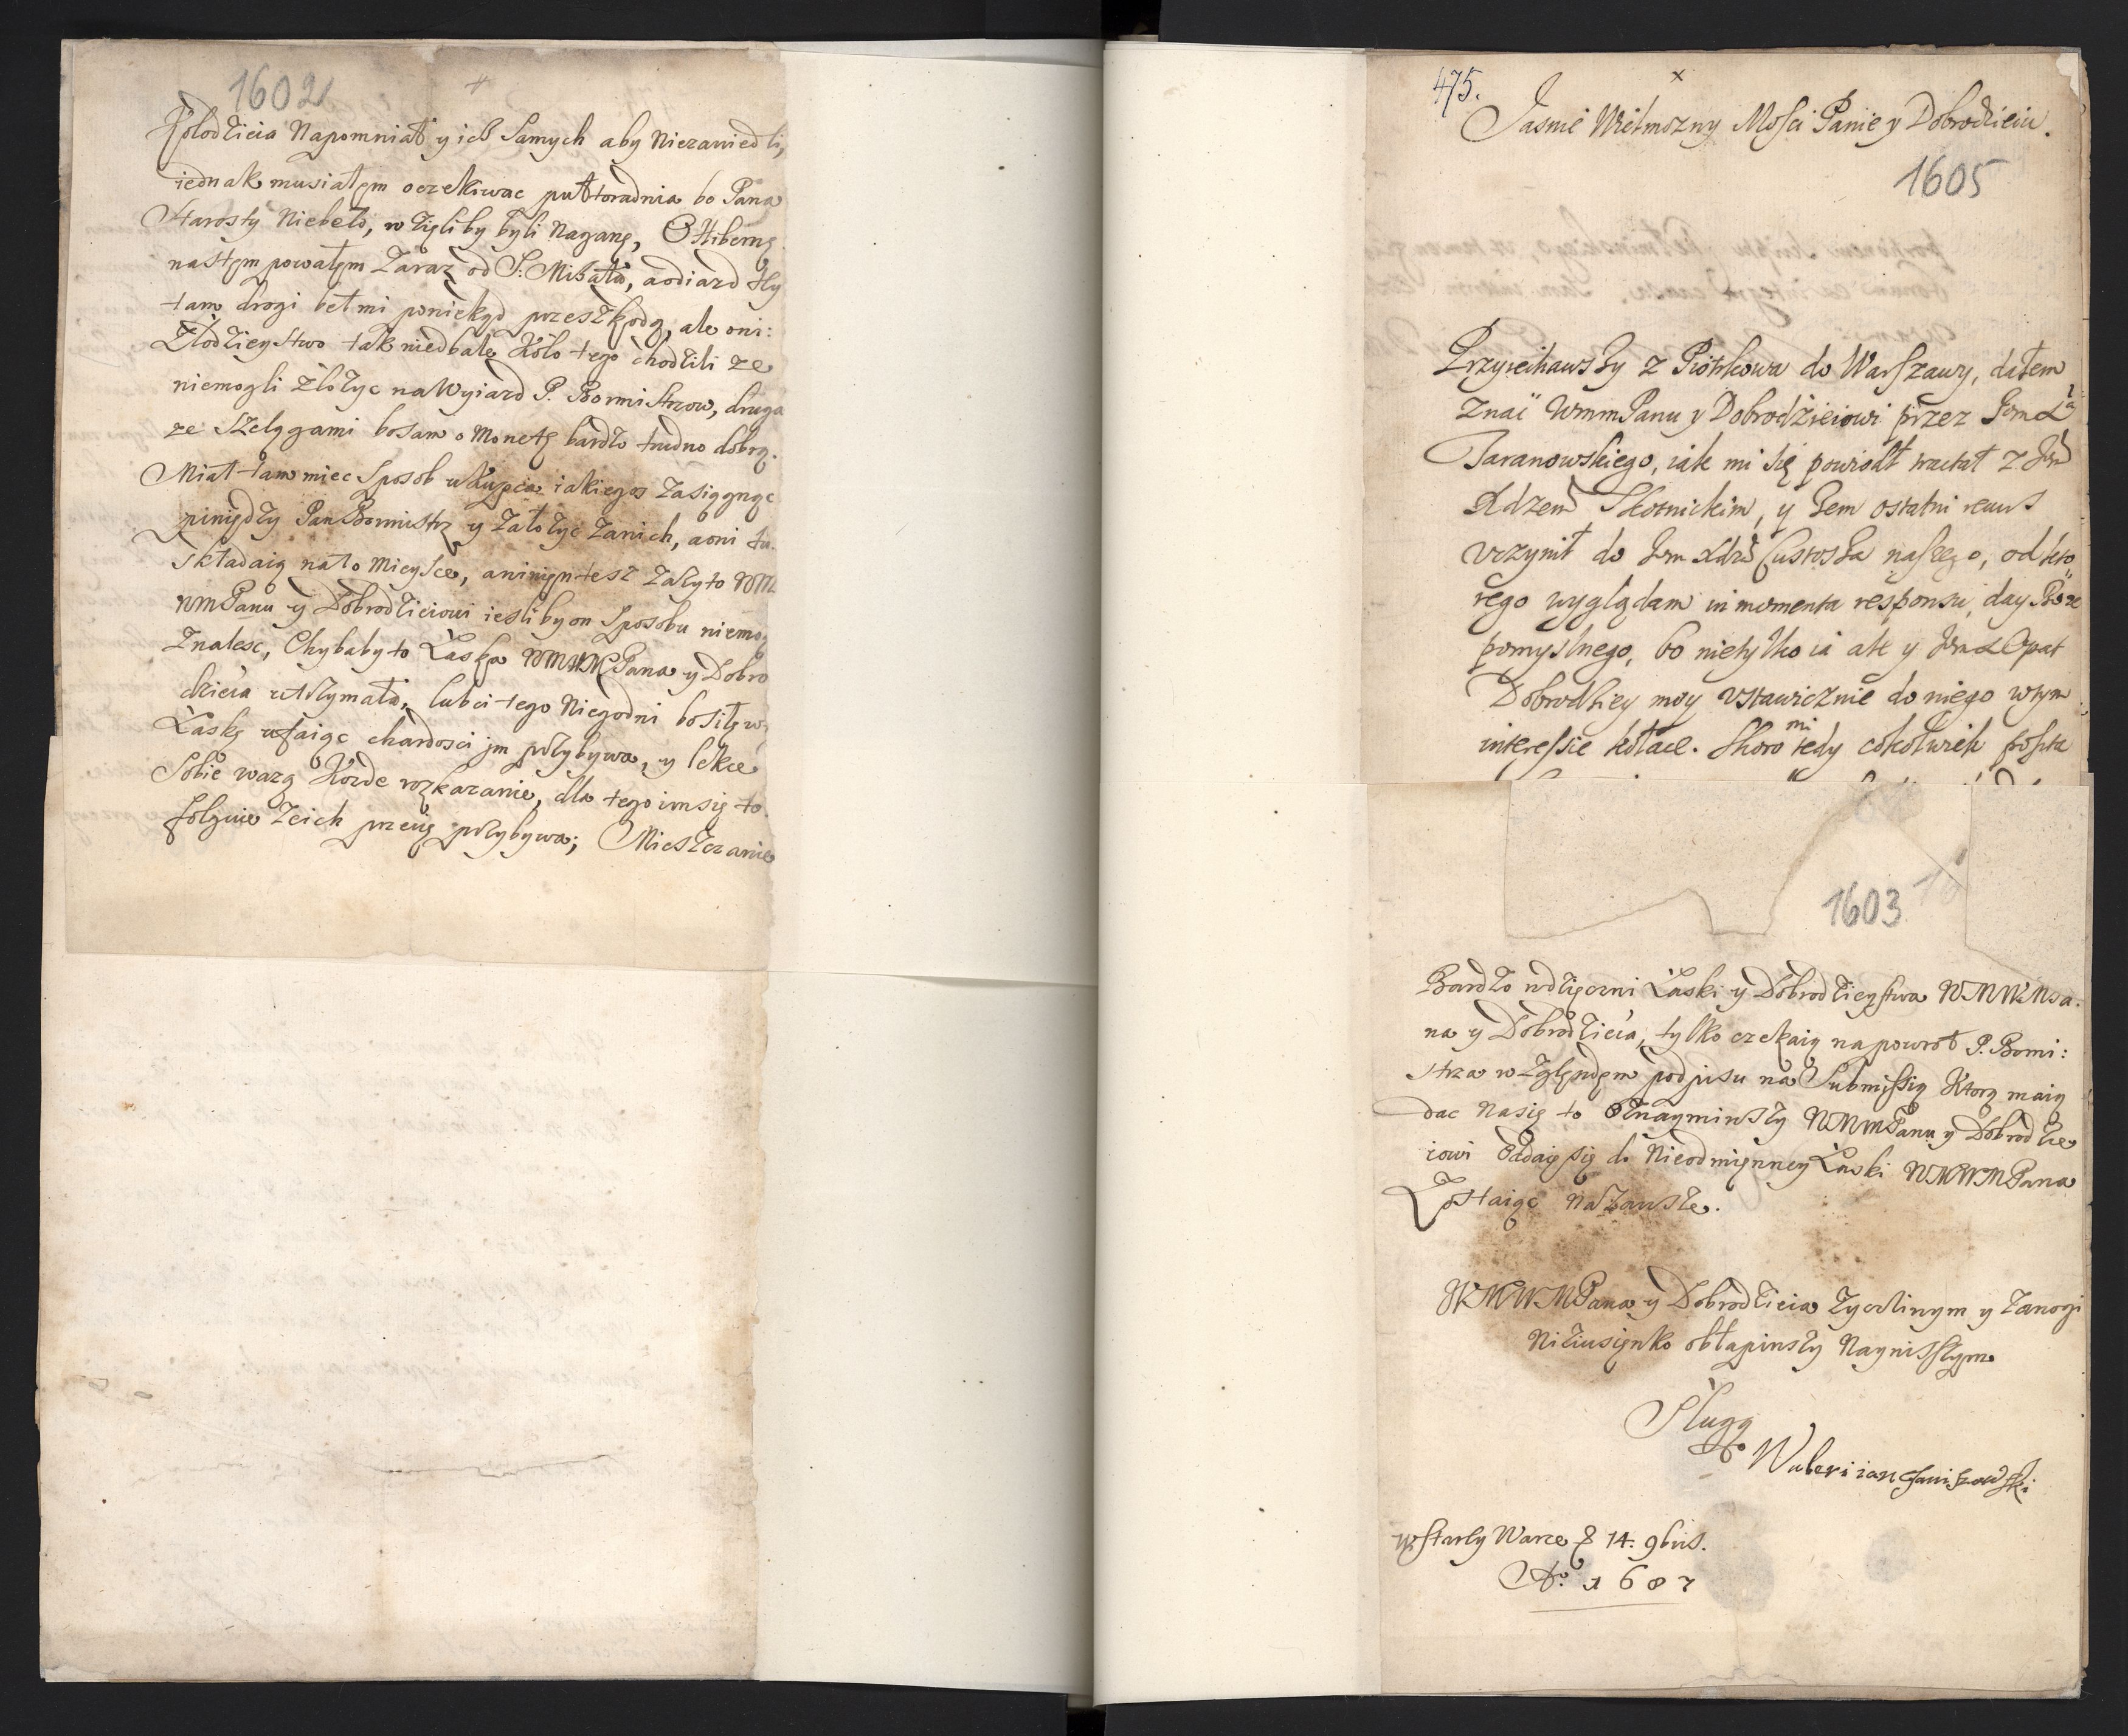 1602
Kołodzieia Napomniał y ich Samych aby Niezawiedli,
iednak musiałęm oczekiwac pułtoradnia bo Pana
Starosty Niebeło, w Zięliby byli Naganę, O Hibernę
nastęmpowałęm Zaraz od S: Michała, a odiazd
tam drogi beł mi poniekąd przeszkodą, ale oni:
Złodzieystwo tak niedbale Koło tego chodzili ze
niemogli Złozyc na Wyiazd P. Bormistrzow, druga
ze Szelągami bo sam o Monetę bardzo trudno dobrą.
Miał tam miec Sposob u Kupca iakiegos Zasięgnąc
piniędzy Pan Bormistrz y Załozyc Zanich, a oni tu
Składaią na to Mieysce, a niemięntesz Zaszyto WM
WMPanu y Dobrodzieiowi iesliby on Sposobu niemog
Znalesc, Chybaby to Łaska WMWMPana y Dobro
dzieia utrzymała, lubci tego Niegodni bo Silę w
Łaskę ufaiąc chardosci jm przybywa, y lekce
Sobie wazą Kozde rozkazanie, dla tego im się to
folguie Zeich prezię przybywa; Mieszczanie
475.
Jasnie Wielmozny Mosci Panie y Dobrodzieiu.
1605
Przyiechawszy z Piotrkowa do Warszawy, dałem
Znać WmmPanu y Dobrodzieiowi przez Jm X
Taranowskiego, iak mi się powiodł tractat z Jm
Xdzem Skotnickim, y zem ostatni recurs
Vczynił do Jm Xdza Custosza naszego, od kto
rego wyglądam in momenta responsu, day Boze
pomyslnego, bo nietylko ia ale y Jm X Opat
Dobrodziey moy Vstawicznie do niego w tym
interessie kołace. Skoro mi tedy cokolwiek poszta
1603
Bardzo wdzięczni Łaski y Dobrodzieystwa WMWMPa
na y Dobrodzieia, tylko czekaią na powrot P. Bormi:
strza wzglęndęm podpisu na Submissią Ktorą maią
dac Nasię to Oznaymiwszy WMMPanu y Dobrodzie
iowi Oddaię się do Nieodmięnney Łaski WMWMPana
Zostaiąc Na Zawsze.
WMWMPana y Dobrodzieia Zyczliwym y Zanogi
Niziusięnko obłapiwszy Nayniszszym
Sługą
Waleriian Janiszowski
w Starey Warce d 14. 9bris.
Ao. 1687